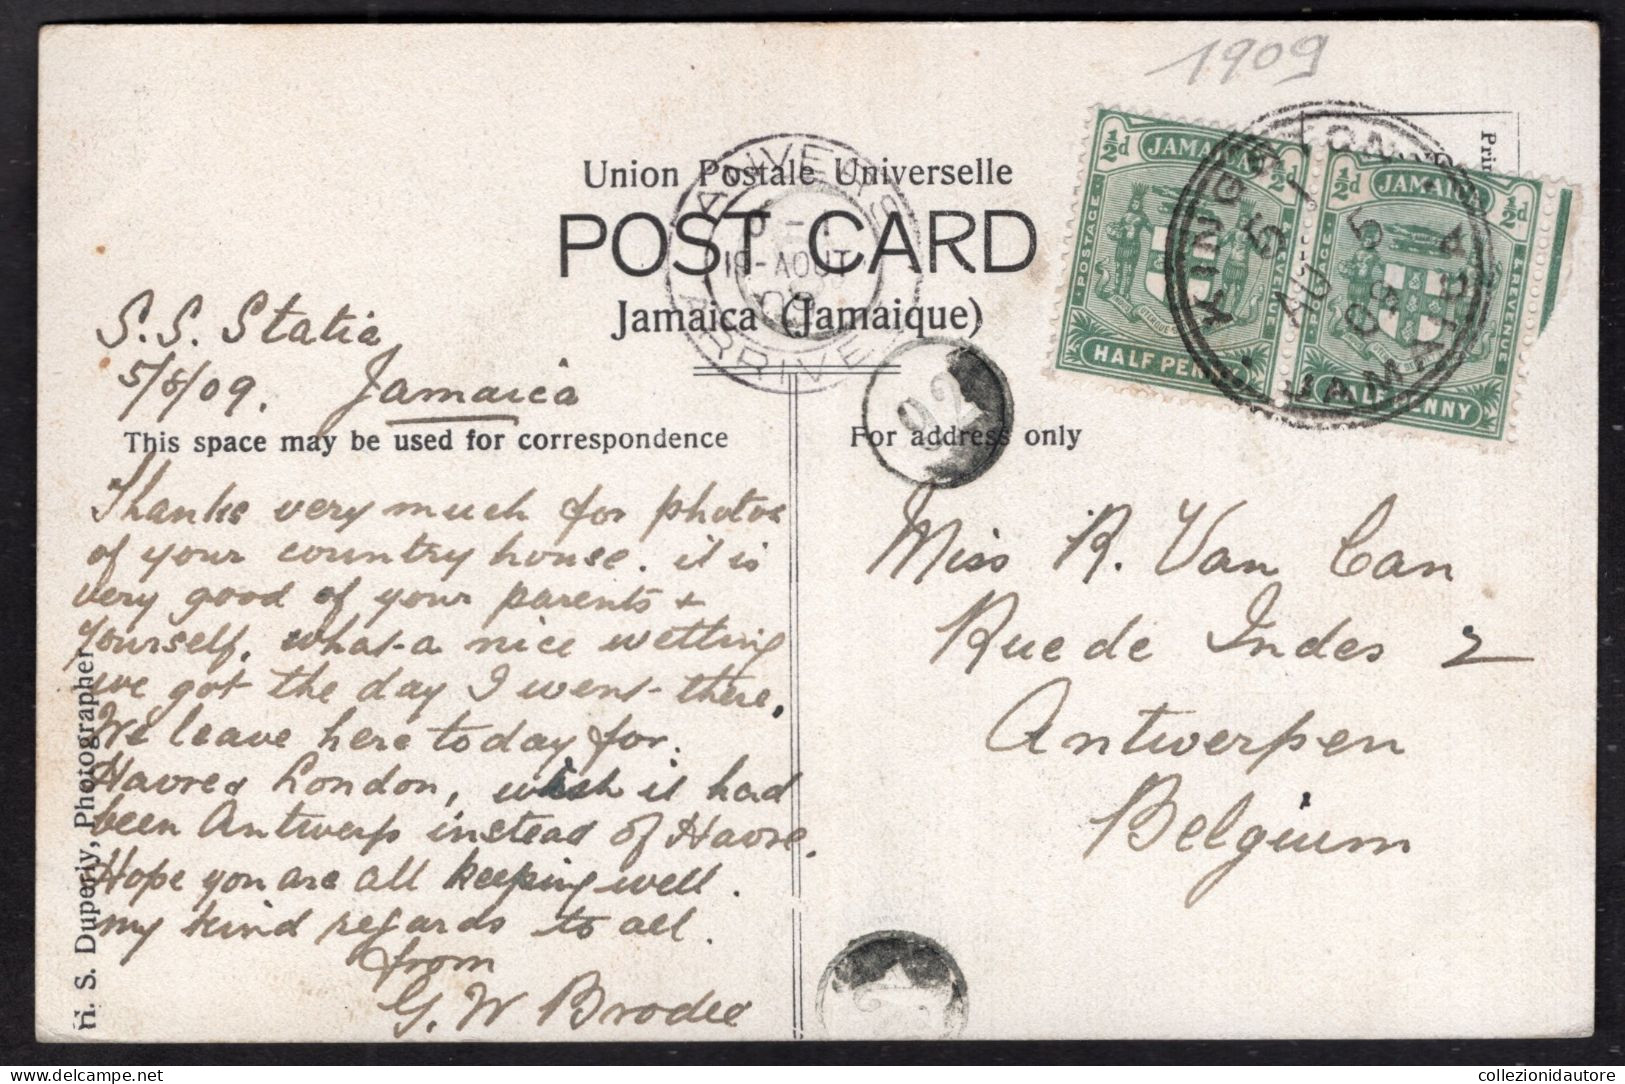 1909
Union Postale Universelle
POST CARD
Jamaica (Jamaique)
ANVERS
19-AOUT
09
ARRIVEE
½d JAMAICA ½d
POSTAGE & REVENUE
HALF PENNY
½d JAMAICA ½d
POSTAGE & REVENUE
HALF PENNY
KINGSTON
5
AU 5
09
JAMAICA
92
S.S. Statia
5/8/09. Jamaica
This space may be used for correspondence
For address only
Thanks very much for photos
of your country house. it is
very good of your parents +
yourself, what a nice wetting
we got the day I went there.
We leave here today for
Havre & London, wish it had
been Antwerp instead of Havre.
Hope you are all keeping well.
my kind regards to all.
from
G. W Brodie
Miss R. Van Can
Rue de Indes 2
Antwerpen
Belgium
H. S. Duperly, Photographer
collezionidautore
collezionidautore.delcampe.net